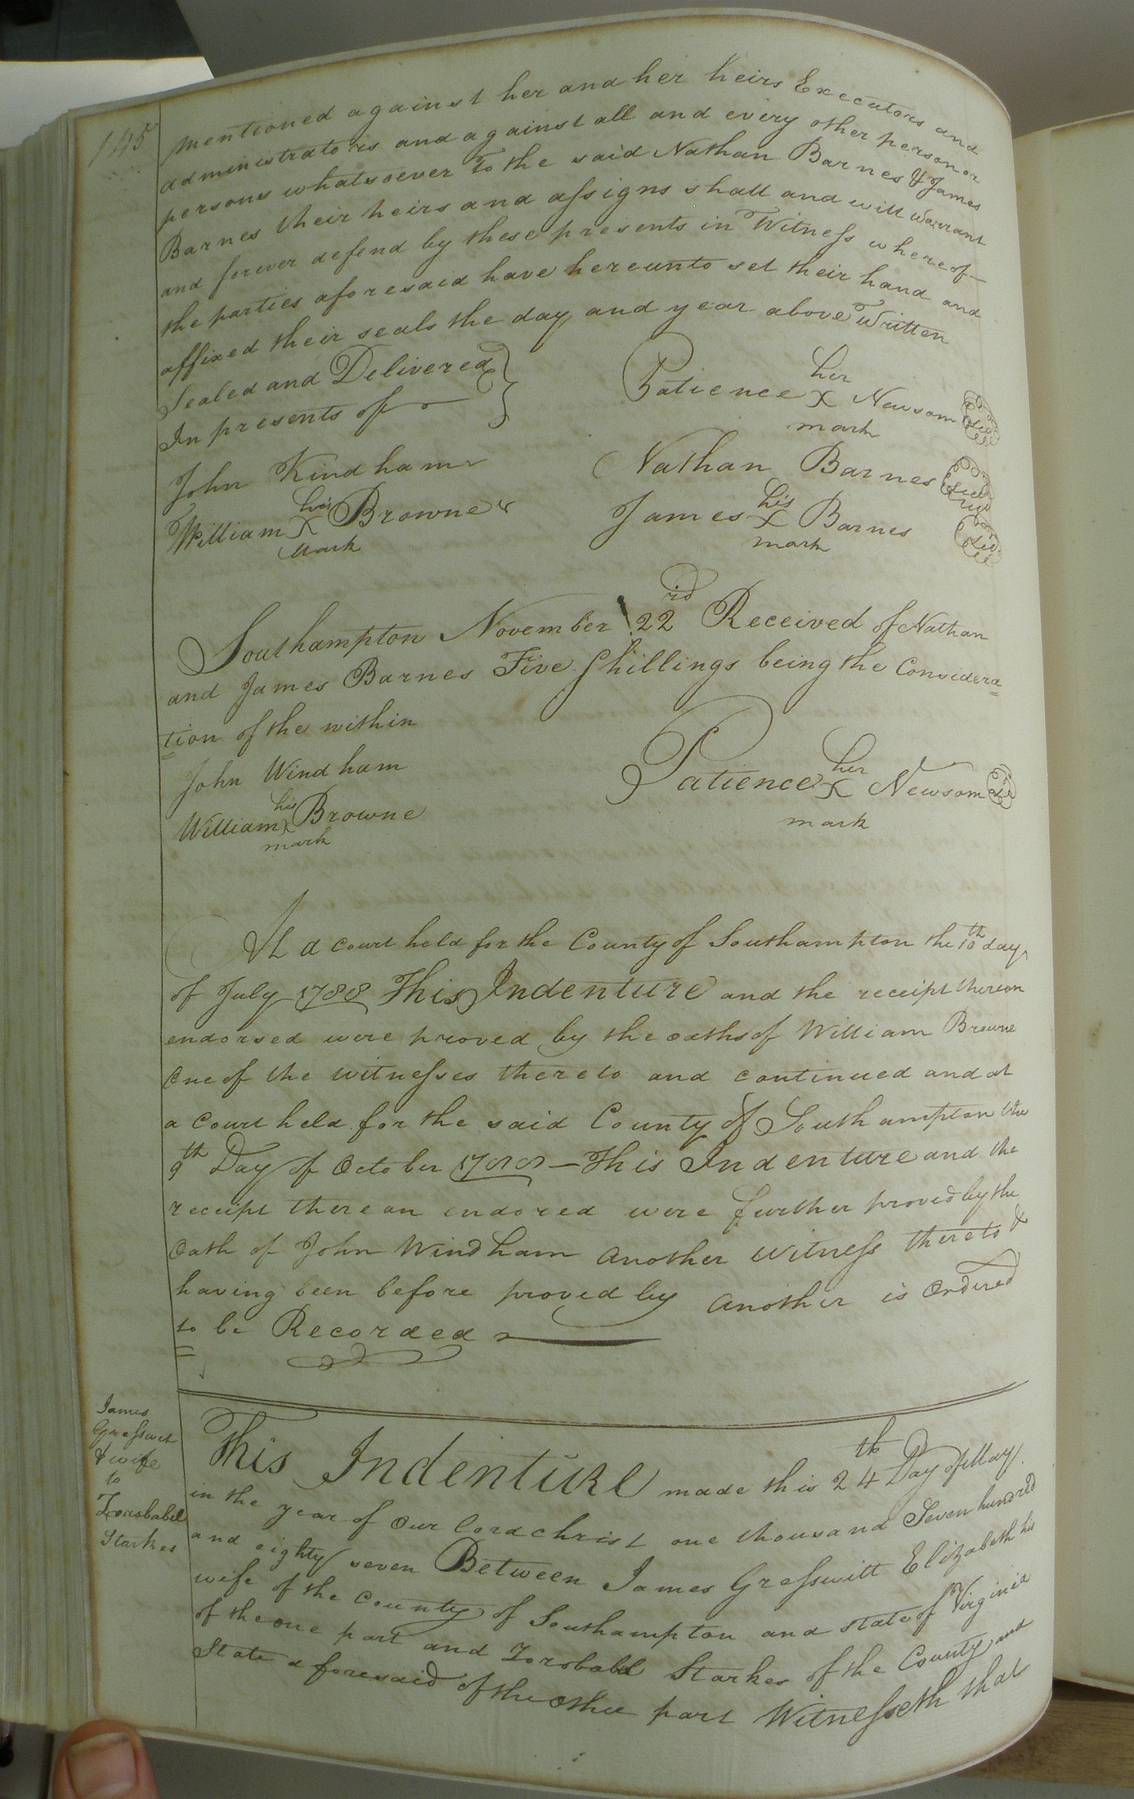 145
mentioned against her and her heirs Executors and
administrators and against all and every other person or
persons whatsoever to the said Nathan Barnes & James
Barnes their heirs and assigns shall and will warrant
and forever defend by these presents in Witness whereof
the parties aforesaid have hereunto set their hand and
affixed their seals the day and year above Written
Sealed and Delivered
In presents of
her
Patience X Newsom
mark
John Kindham
Nathan Barnes
his
William X Browne
mark
his
James X Barnes
mark
Southampton November 22rd Received of Nathan
and James Barnes Five Shillings being the Considera=
=tion of the within
John Windham
his
William X Browne
mark
her
Patience X Newsom
mark
At a court held for the County of Southampton the 10th day
of July 1788 This Indenture and the receipt thereon
endorsed were proved by the oaths of William Browne
One of the witnesses thereto and continued and at
a Court held for the said County of Southampton the
9th Day of October 1788 - This Indenture and the
receipt thereon endored were further proved by the
Oath of John Windham Another Witness thereto &
having been before proved by Another is Ordered
to be Recorded
James
Gresswit
& wife
to
Zorobabel
Starkes
This Indenture made this 24th Day of May
in the year of Our Lord christ one thousand Seven hundred
and eighty seven Between James Gresswitt Elizabeth his
wife of the County of Southampton and state of Virginia
of the one part and Zorobabel Starkes of the County and
State aforesaid of the Other part Witnesseth that